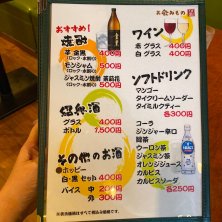 お飲みもの
おすすめ!
焼酎
芋 金黒 400円
(ロック・水割り)
モンシャム 500円
(ロック・水割り)
ジャスミン焼酎 茉莉花
(ロック・水割り) 500円
紹興酒
グラス 400円
ボトル 1,500円
その他のお酒
●ホッピー
白・黒 セット 400円
バイス 中 200円
外 300円
ワイン
赤 グラス 400円
白 グラス 400円
ソフトドリンク
マンゴー
タイクロームソーダー
タイミルクティー
各300円
コーラ
ジンジャーエール
緑茶
ウーロン茶
ジャスミン茶
オレンジジュース
カルピス
カルピスソーダ
各250円